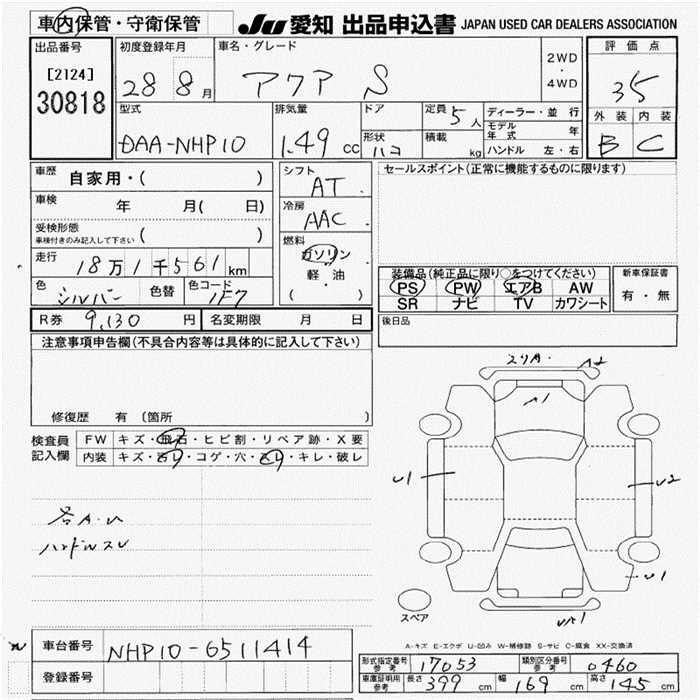 車内保管・守衛保管
JU 愛知 出品申込書 JAPAN USED CAR DEALERS ASSOCIATION
出品番号
[2124]
30818
初度登録年月
28 8月
車名・グレード
アクア S
2WD
・
4WD
評価点
35
外装 内装
B C
型式
DAA-NHP10
排気量
1.49 cc
ドア
形状
ハコ
定員 5人
積載 kg
ディーラー・並行
モデル年式 年
ハンドル 左・右
車歴 自家用・( )
車検 年 月( 日)
受検形態
車検付きのみ記入して下さい ( )
走行 18万1千561km
色 シルバー 色替 色コード 1F7
シフト
AT
冷房
AAC
燃料
ガソリン
軽・油
( ・ )
セールスポイント(正常に機能するものに限ります)
装備品(純正品に限り○をつけてください)
PS PW エアB AW
SR ナビ TV カワシート
新車保証書
有・無
後日品
R券 9,130 円 名変期限 月 日
注意事項申告欄(不具合内容等は具体的に記入して下さい)
修復歴 有 〔箇所 〕
検査員
記入欄
FW キズ・飛石・ヒビ割・リペア跡・X要
内装 キズ・汚レ・コゲ・穴・スレ・キレ・破レ
各A.U
ハンドルスレ
スリA・ A2
A1
U1
U2
U1
スペア
A-キズ E-エクボ U-凹み W-補修跡 S-サビ C-腐食 XX-交換済
車台番号 NHP10-6511414
登録番号
形式指定番号
参考
17053
類別区分番号
参考
0460
車庫証明用
参考
長さ 399 cm 幅 169 cm 高さ 145 cm